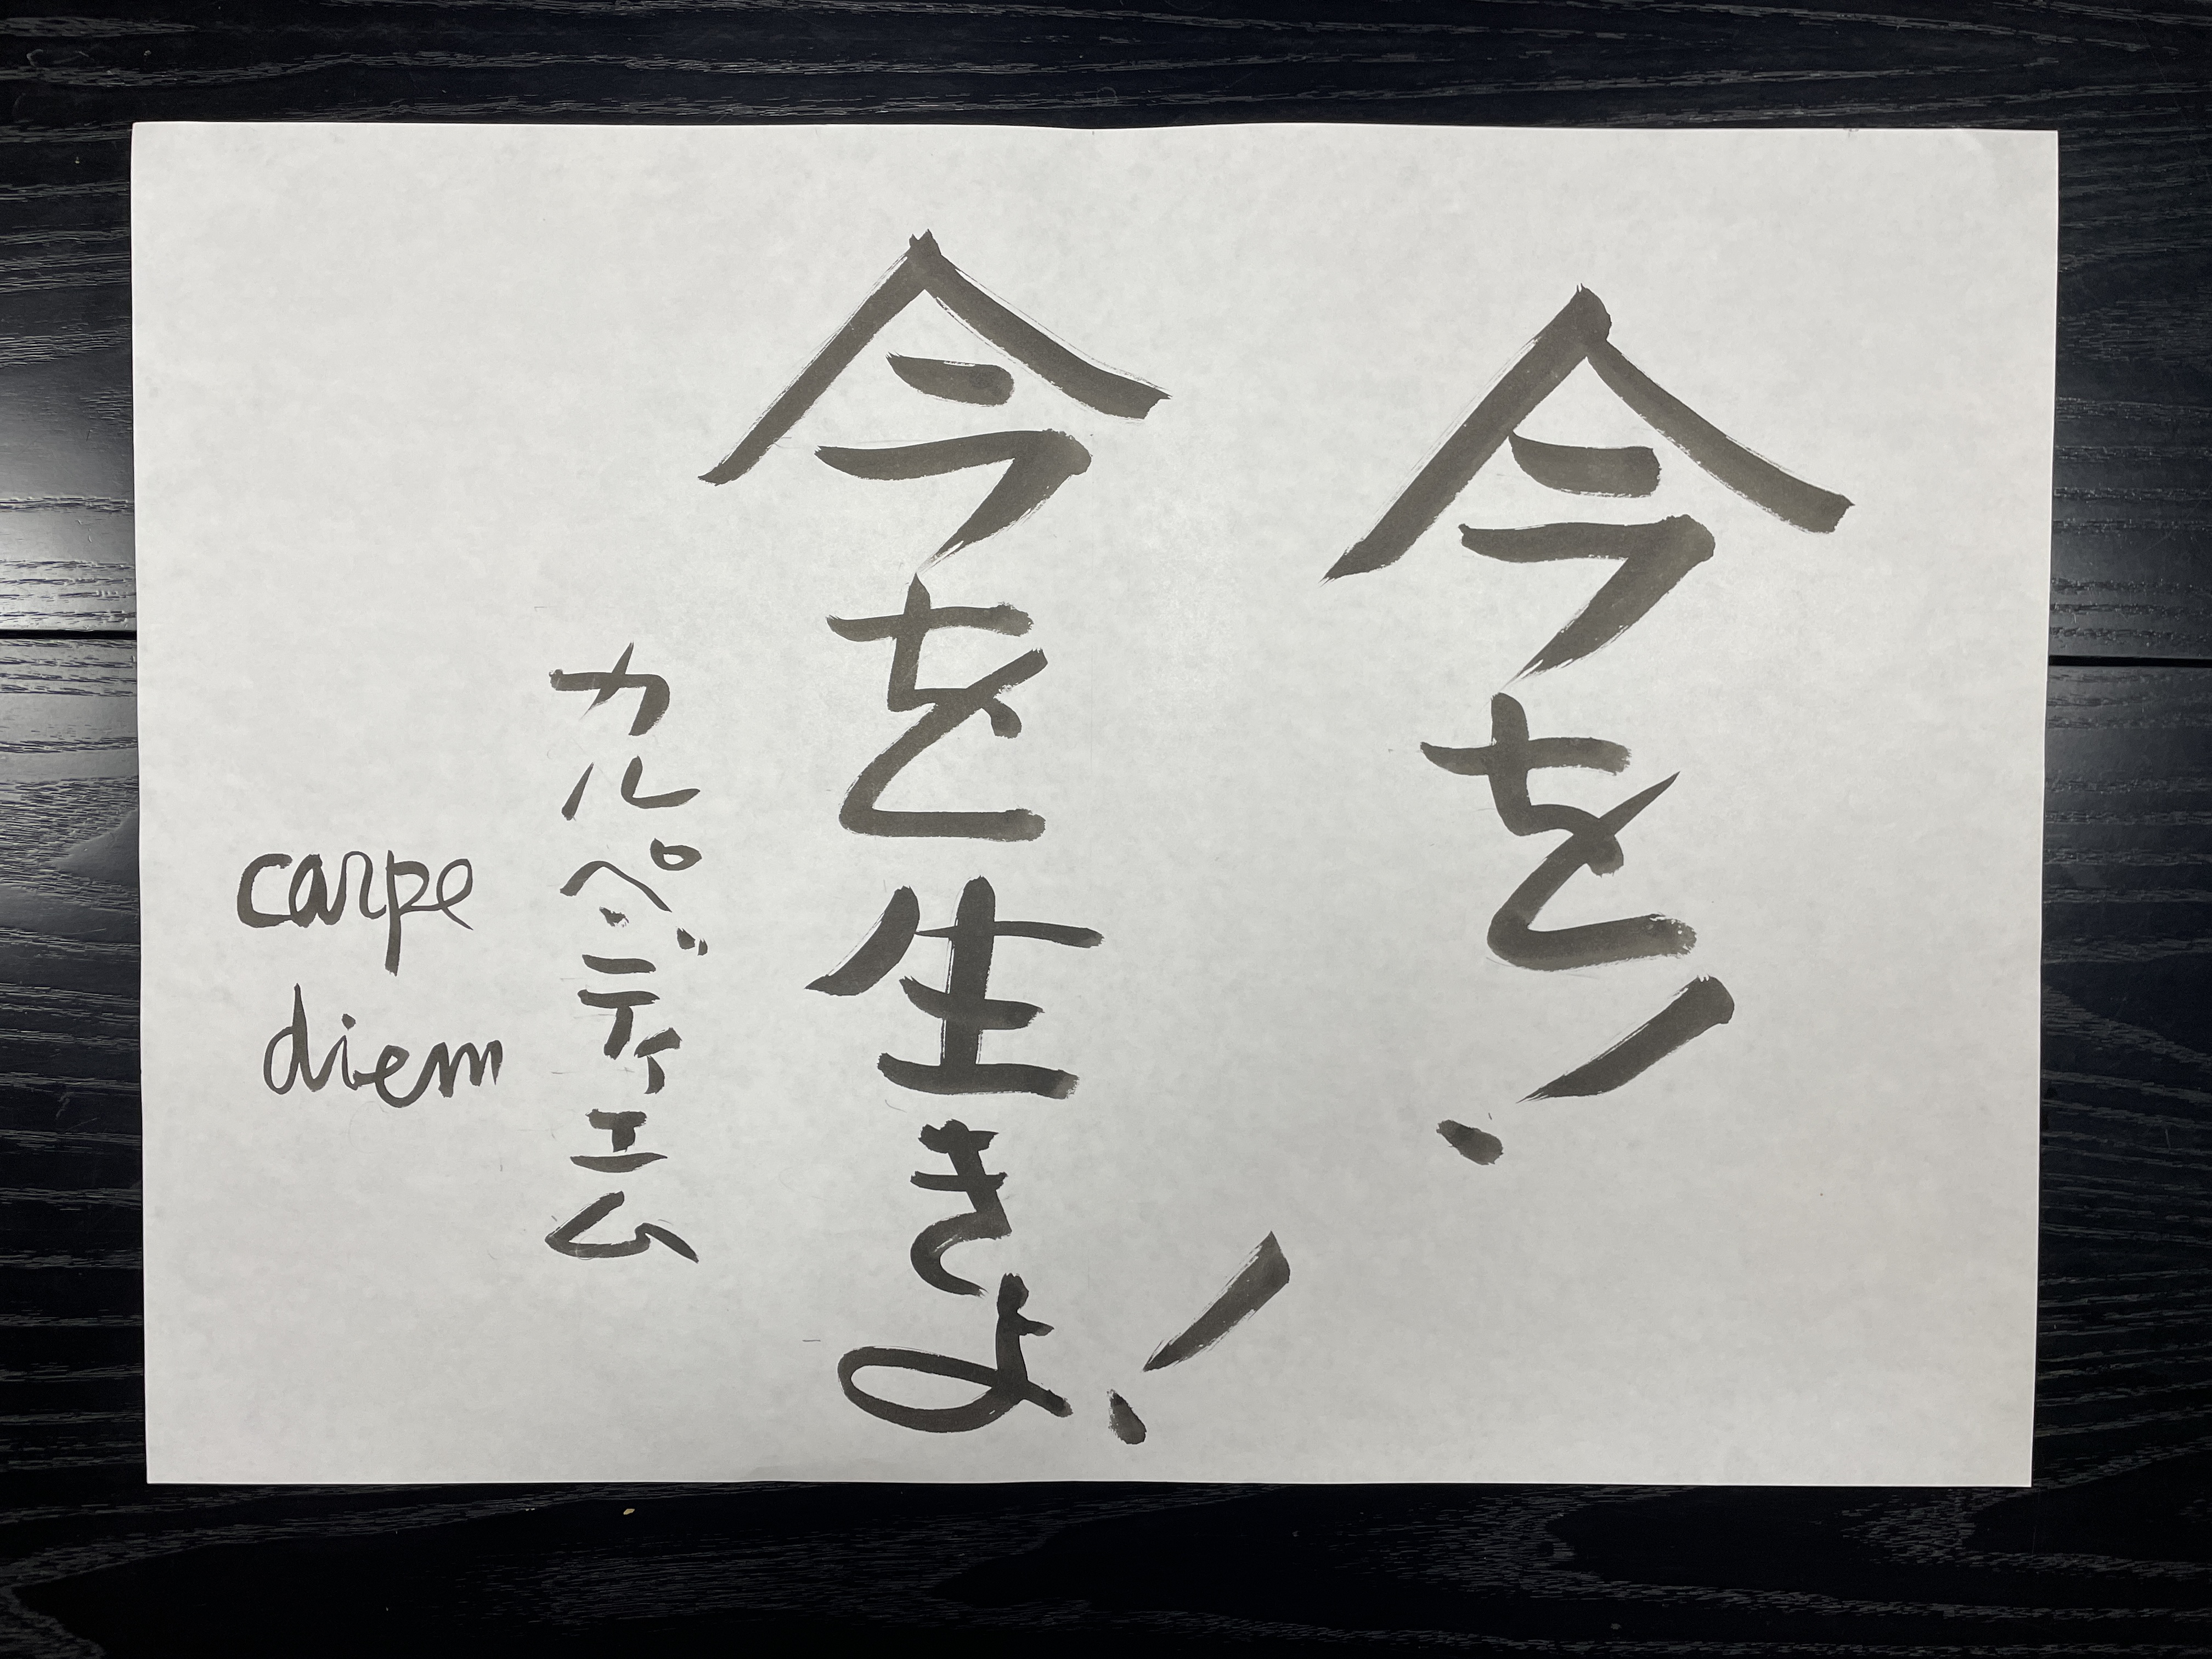 今を!
今を生きよ!
カルペ・ディエム
carpe
diem